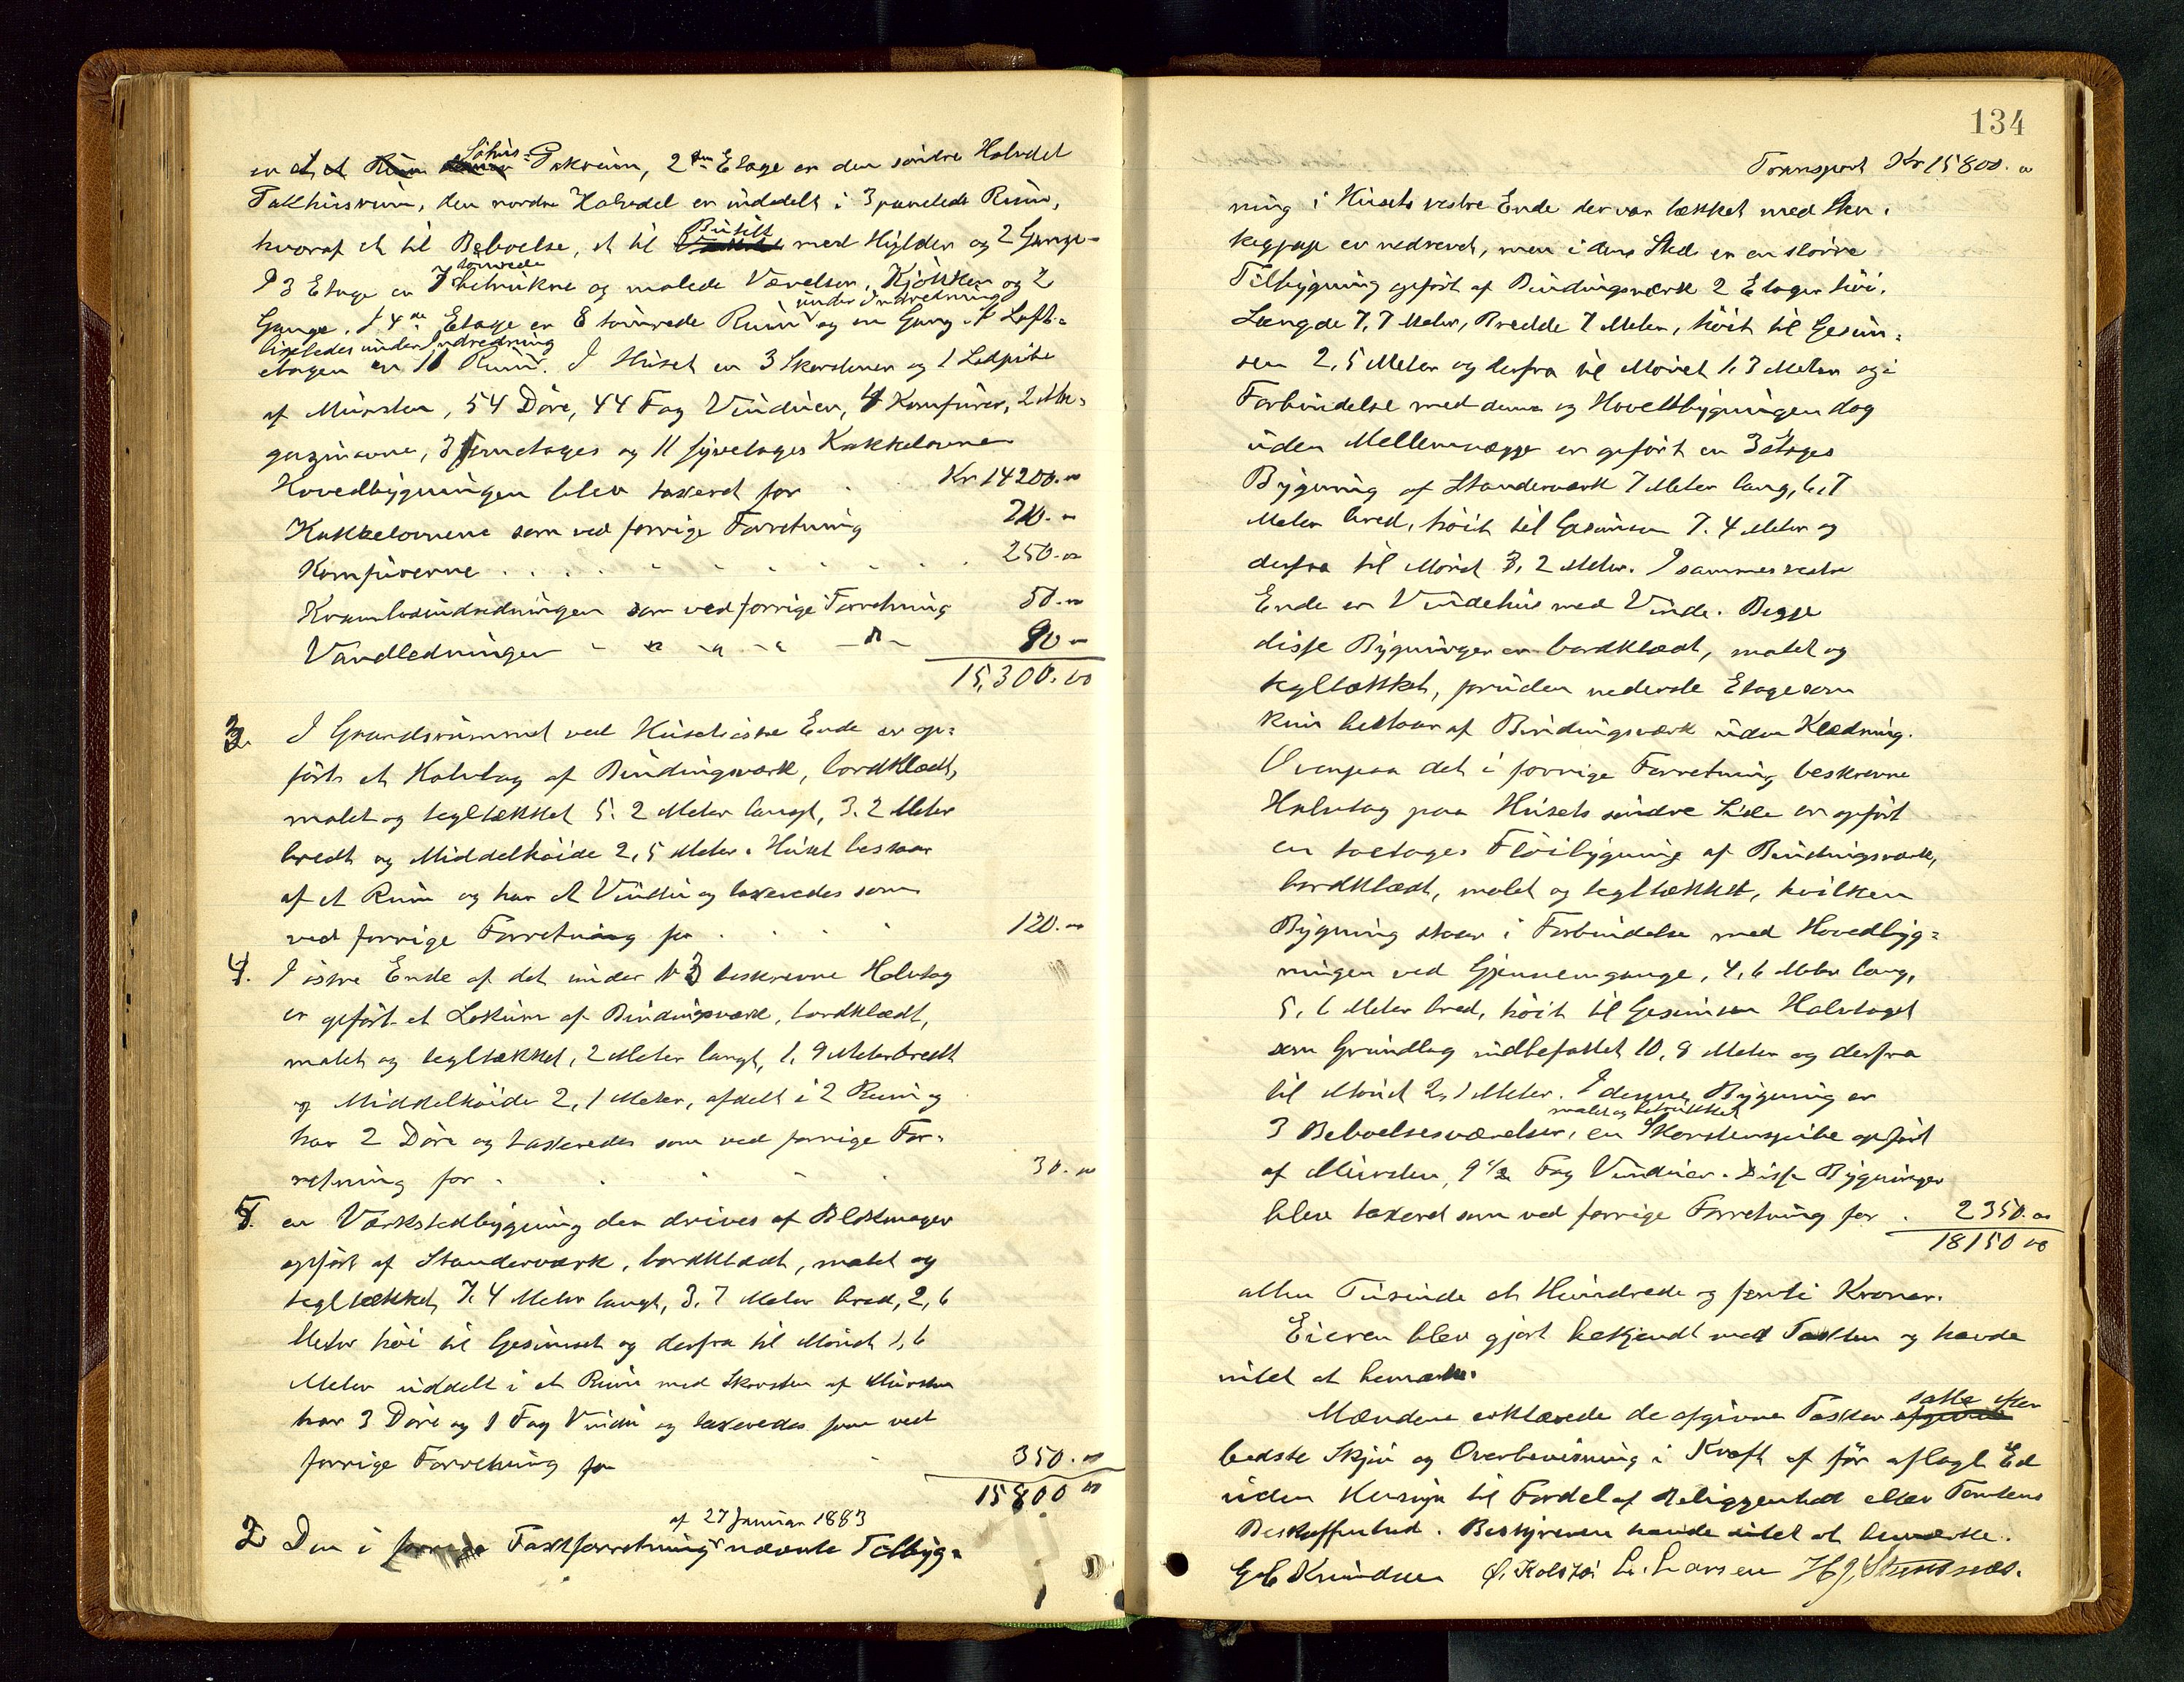 er et et Rum Söhus- Pakrum, 2den Etage er den söndre Halvdel
Pakhusrum, den nordre Halvdel er inddelt i 3 panelede Rum,
hvoraf et til Beboelse, et til Butik med Hylder og 2 Gange.
I 3 Etage er 7 tömrede betrukne og malede Værelser, Kjökken og 2
Gange. I 4de Etage er 8 tömrede Rum under Indredning og en Gang. I Loft-
etagen er 11 Rum ligeledes under Indredning. I Huset er 3 Skorstener og 1 Ledpibe
af Mursten, 54 Döre, 44 Fag Vinduer, 4 Komfurer, 2 Ma-
gazinovne, 3 femetages og 11 fyretages Kakkelovne
Hovedbygningen blev taxeret for . Kr 14200.00
Kakkelovnene som ved forrige Forretning 210.00
Komfurerne . . . . . . . . . . 250.00
Kramboindredningen som ved forrige Forretning 50.00
Vandledningen - " - " - " - " - 90 -
15,300.00
3. I Grundsrummet ved Husets östre Ende er op-
fört et Halvtag af Bindingsværk, bordklædt,
malet og tegltækket 5.2 Meter langt, 3.2 Meter
bredt og Middelhöide 2,5 Meter. Huset bestaar
af et Rum og har et Vindu og taxeredes som
ved forrige Forretning for . . . . 120.00
4. I östre Ende af det under N 3 beskrevne Halvtag
er opfört et Lokum af Bindingsværk, bordklædt,
malet og tegltækket, 2 Meter langt, 1,9 Meter bredt
og Middelhöide 2,1 Meter, afdelt i 2 Rum og
har 2 Döre og taxeredes som ved forrige For-
retning for . . . . 30.00
5. en Værkstedbygning der drives af Blokmager
opfört af Standerværk, bordklædt, malet og
tegltækket, 7.4 Meter langt, 3.7 Meter bred, 2,6
Meter höi til Gesimset og derfra til Mönet 1,6
Meter uddelt i et Rum med Skorsten af Mursten
har 3 Döre og 1 Fag Vindu og taxeredes som ved
forrige Forretning for . 350.00
15800 00
2. Den i Taxtforretning af 27 Januar 1883 nævnte Tilbyg-
134
Transport Kr 15800.00
ning i Husets vestre Ende der var tækket med Sten-
kegpap er nedrevet, men i dens Sted er en större
Tilbygning opfört af Bindingsværk 2 Etager höi.
Længde 7,7 Meter, Bredde 7 Meter, höit til Gesim-
sen 2,5 Meter og derfra til Mönet 1.3 Meter og i
Forbindelse med denne og Hovedbygningen dog
uden Mellemvægge er opfört en 3 etages
Bygning af Standerværk 7 Meter lang, 6,7
Meter bred, höit til Gesimsen 7.4 Meter og
derfra til Mönet 3,2 Meter. I sammes vestre
Ende er Vindehus med Vinde. Begge
disse Bygninger er bordklædt, malet og
tegltækket, foruden nederste Etage som
kun bestaar af Bindingsværk uden Klædning.
Ovenpaa det i forrige Forretning beskrevne
Halvtag paa Husets söndre Side er opfört
en toetages Flöibygning af Bindingsværk,
bordklædt, malet og tegltækket, hvilken
Bygning staar i Forbindelse med Hovedbyg-
ningen ved Gjennemgange, 4,6 Meter lang,
5,6 Meter bred, höit til Gesimsen Halvtaget
som Grundlag indbefattet 10,8 Meter og derfra
til Mönet 2,1 Meter. I denne Bygning er
3 Beboelsesværelser, malet og betrukket en Skorstenspibe opfört
af Mursten, 9 1/2 Fag Vinduer. Disse Bygninger
blev taxeret som ved forrige Forretning for . 2350.00
18150 00
atten Tusinde et Hundrede og femti Kroner.
Eieren blev gjort bekjendt med Taxten og havde
intet at bemærke.
Mændene erklærede de afgivne Taxter afgivne satte efter
bedste Skjön og Overbevisning i Kraft af för aflagt Ed
uden Hensyn til Fordel af Beliggenhed eller Tomtens
Beskaffenhed. Bestyreren havde intet at bemærke.
G C Knudsen Ö. Kolstö L. Larsen H J Stensnæs.